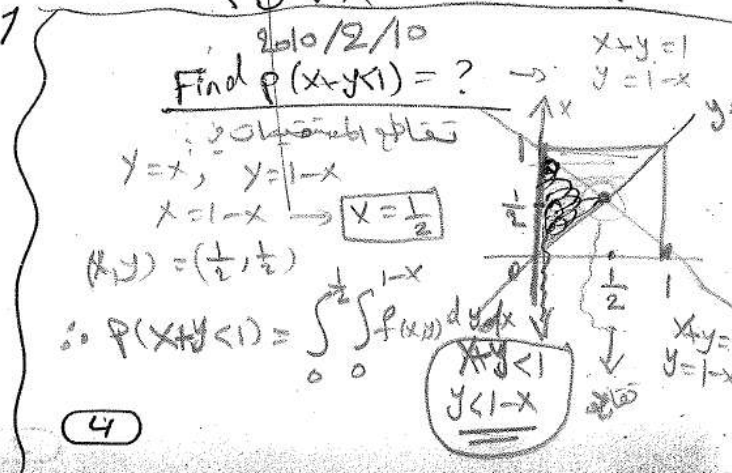 2010/2/10
Find P(x+y<1) = ? → x+y=1
y=1-x
تقاطع المنحنيات
y=x, y=1-x
x=1-x → x=1/2
(x,y) = (1/2, 1/2)
∴ P(x+y<1) = ∫₀^(1/2) ∫₀^(1-x) f(x,y) dy dx
x+y<1
y<1-x
x
y=
1
1/2
0
1/2
1
x+y=
y=1-x
تقاطع
4